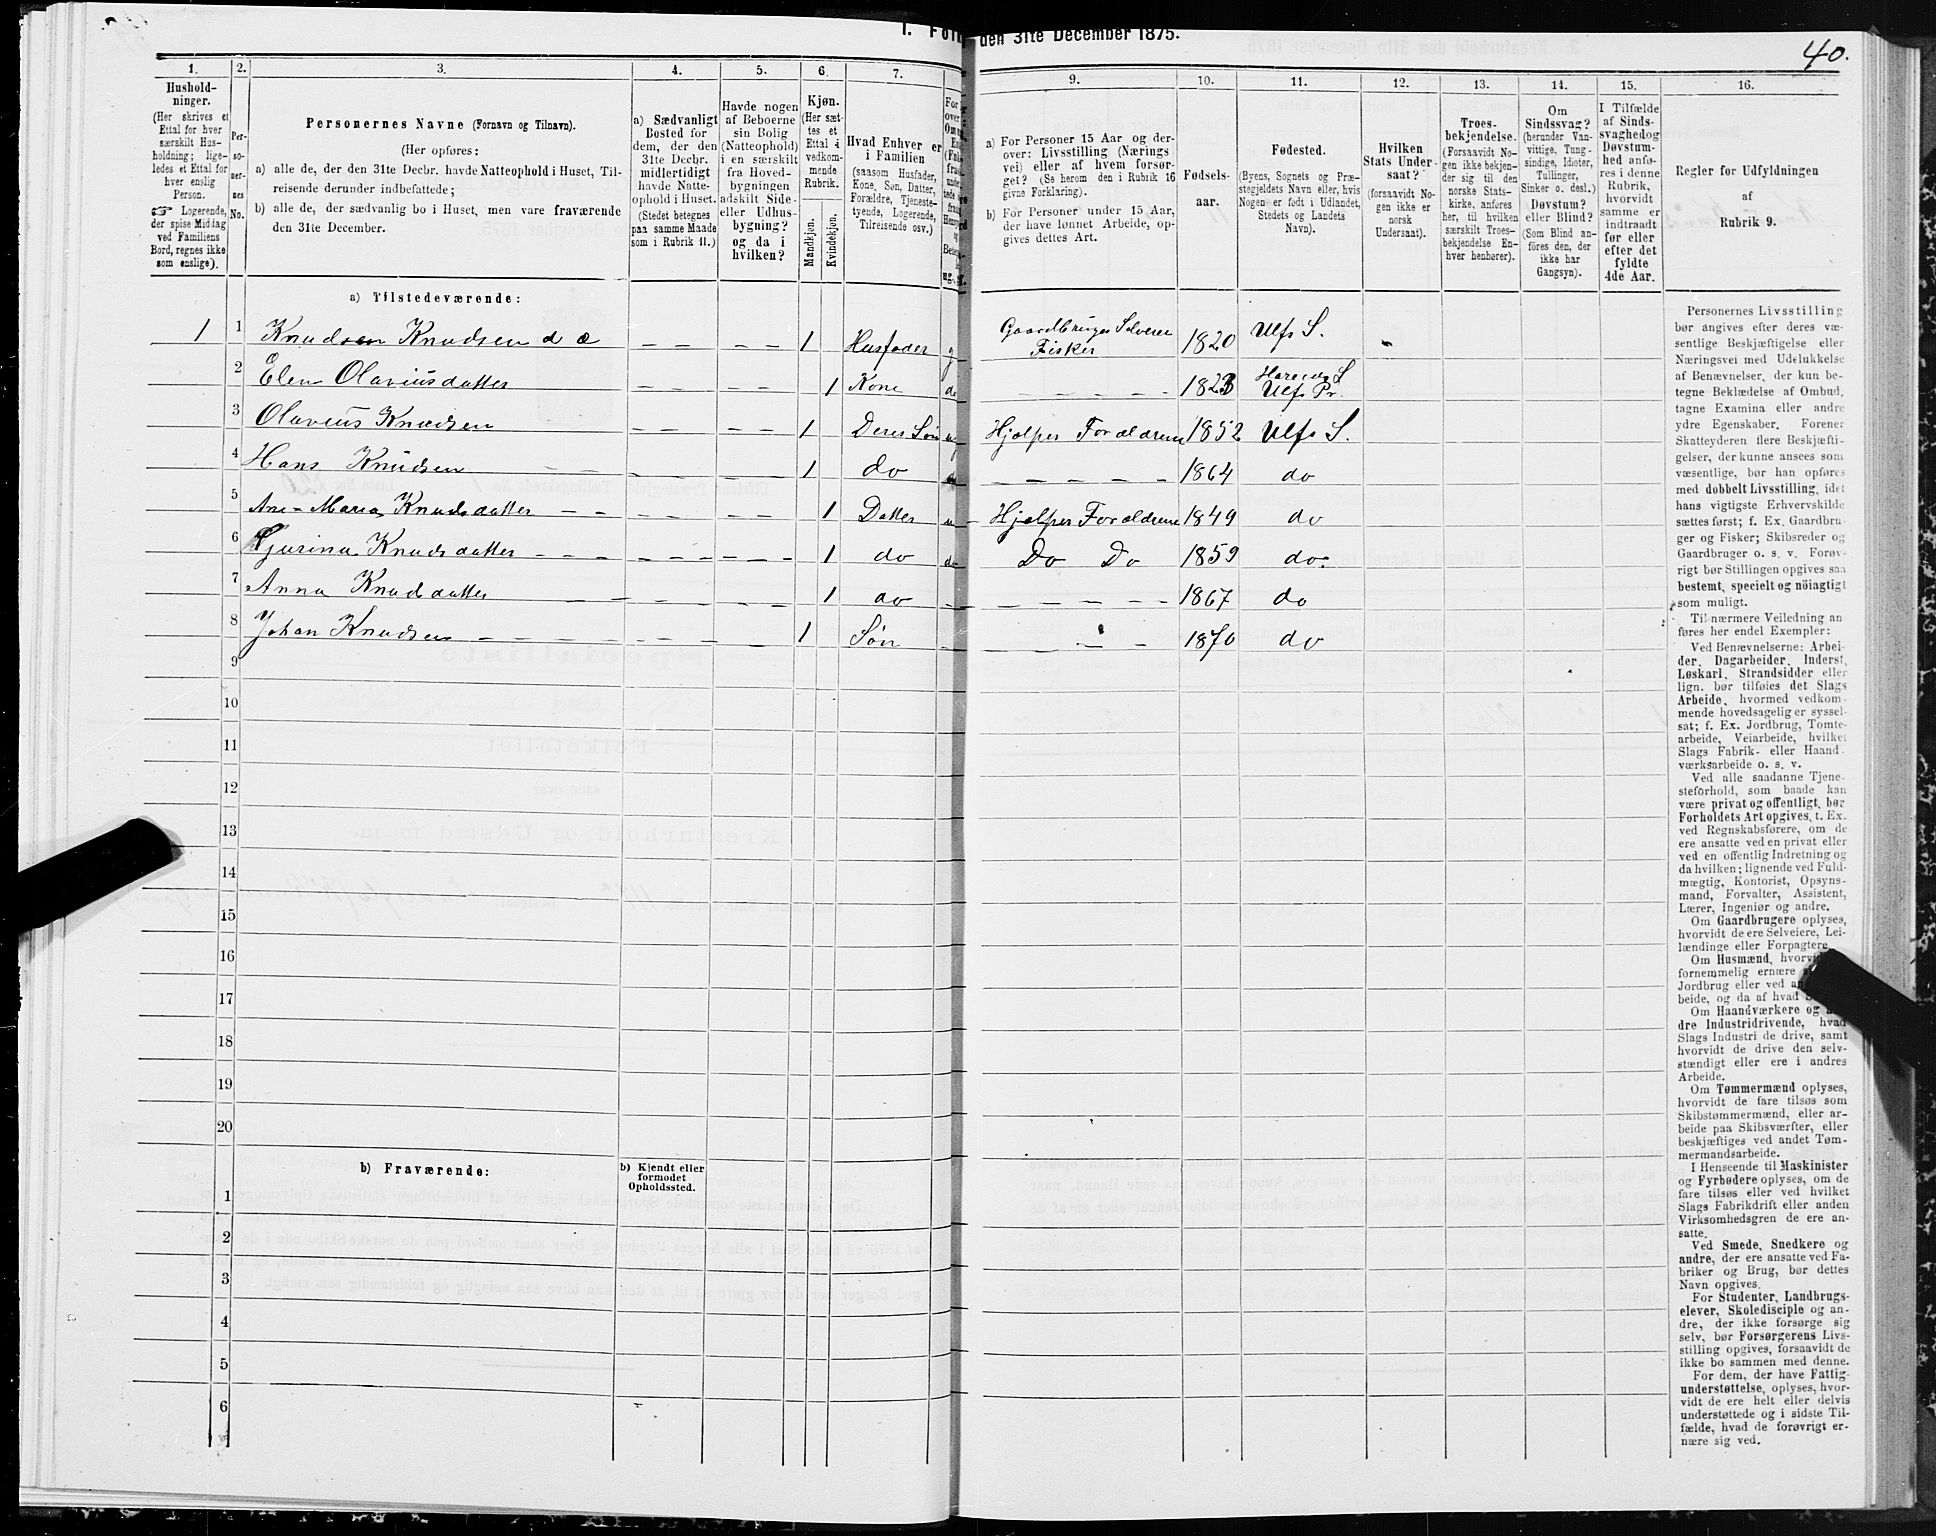 1. Folk
den 31te December 1875.
40.
1.
2.
3.
4.
5.
6.
7.
9.
10.
11.
12.
13.
14.
15.
16.
Hushold-
ninger.
(Her skrives et
Ettal for hver
særskilt Hus-
holdning; lige-
ledes et Ettal for
hver enslig
Person.
☞ Logerende,
der spise Middag
ved Familiens
Bord, regnes ikke
som enslige).
Per-
so-
ner-
nes
No.
Personernes Navne (Fornavn og Tilnavn).
(Her opføres:
a) alle de, der den 31te Decbr. havde Natteophold i Huset, Til-
reisende derunder indbefattede;
b) alle de, der sædvanlig bo i Huset, men vare fraværende
den 31te December.
a) Sædvanligt
Bosted for
dem, der den
31te Decbr.
midlertidigt
havde Natte-
ophold i Huset.
(Stedet betegnes
paa samme Maade
som i Rubrik 11.)
Havde nogen
af Beboerne
sin Bolig
(Natteophold)
i en særskilt
fra Hoved-
bygningen
adskilt Side-
eller Udhus-
bygning?
og da i
hvilken?
Kjøn.
(Her sæt-
tes et
Ettal i
vedkom-
mende
Rubrik.
Mandkjøn.
Kvindekjøn.
Hvad Enhver er
i Familien
(saasom Husfader,
Kone, Søn, Datter,
Forældre, Tjeneste-
tyende, Logerende,
Tilreisende osv.)
a) For Personer 15 Aar og der-
over: Livsstilling (Nærings
vei) eller af hvem forsør-
get? (Se herom den i Rubrik 16
givne Forklaring).
b) For Personer under 15 Aar,
der have lønnet Arbeide, op-
gives dettes Art.
Fødsels-
aar.
Fødested.
(Byens, Sognets og Præ-
stegjeldets Navn eller, hvis
Nogen er født i Udlandet,
Stedets og Landets
Navn).
Hvilken
Stats Under-
saat?
(forsaavidt No-
gen ikke er
norsk
Undersaat).
Troes-
bekjendelse.
(Forsaavidt No-
gen ikke bekjen-
der sig til den
norske Stats-
kirke, anføres
her, til hvilken
særskilt Troes-
bekjendelse En-
hver henhører).
Om
Sindssvag?
(herunder Van-
vittige, Tung-
sindige, Idioter,
Tullinger,
Sinker o. desl.)
Døvstum?
eller Blind?
(Som Blind an-
føres den, der
ikke har
Gangsyn).
I Tilfælde
af Sinds-
svaghedog
Døvstum-
hed anfø-
res i denne
Rubrik,
hvorvidt
samme er
indtraadt
før eller
efter det
fyldte
4de Aar.
Regler for Udfyldningen
af
Rubrik 9.
a) Tilstedeværende:
1 1 Knudsen Knudsen d æ – – – – 1 Husfader g Gaardbruger Selveier Fisker 1820 Ulfs S.
2 Elen Olaviusdatter – – – – 1 Kone do – – – – – 1823 Hareids S Ulfs Pr.
3 Olavius Knudsen – – – – 1 Deres Søn u Hjælper Forældrene 1852 Ulfs S.
4 Hans Knudsen – – – – 1 do – – – – – 1864 do
5 Ane-Maria Knudsdatter – – – – 1 Datter u Hjælper Forældrene 1849 do
6 Gjurina Knudsdatter – – – – 1 do do Do Do 1859 do.
7 Anna Knudsdatter – – – – 1 do – – – – – 1867 do
8 Johan Knudsen – – – – 1 Søn – – – 1870 do
9
10
11
12
13
14
15
16
17
18
19
20
b) Fraværende:
b) Kjendt eller
formodet
Opholdssted.
1
2
3
4
5
6
Personernes Livsstilling
bør angives efter deres væ-
sentlige Beskjæftigelse eller
Næringsvei med Udelukkelse
af Benævnelser, der kun be-
tegne Beklædelse af Ombud,
tagne Examina eller andre
ydre Egenskaber. Forener
Skatteyderen flere Beskjæfti-
gelser, der kunne ansees som
væsentlige, bør han opføres
med dobbelt Livsstilling, idet
hans vigtigste Erhvervskilde
sættes først; f. Ex. Gaardbru-
ger og Fisker; Skibsreder og
Gaardbruger o. s. v. Forøv-
rigt bør Stillingen opgives saa
bestemt, specielt og nöiagtigt
som muligt.
Til nærmere Veiledning an
føres her endel Exempler:
Ved Benævnelserne: Arbei-
der, Dagarbeider, Inderst,
Løskarl, Strandsidder eller
lign. bør tilføies det Slags
Arbeide, hvormed vedkom-
mende hovedsagelig er syssel-
sat; f. Ex. Jordbrug, Tomte-
arbeide, Veiarbeide, hvilket
Slags Fabrik- eller Haand-
værksarbeide o. s. v.
Ved alle saadanne Tjene-
steforhold, som baade kan
være privat og offentligt, bør
Forholdets Art opgives, t. Ex.
ved Regnskabsførere, om de
ere ansatte ved en privat eller
ved en offentlig Indretning og
da hvilken; lignende ved Fuld-
mægtig, Kontorist, Opsyns-
mand, Forvalter, Assistent,
Lærer, Ingeniør og andre.
Om Gaardbrugere oplyses,
hvorvidt de ere Selveiere, Lei-
lændinge eller Forpagtere.
Om Husmænd, hvorvi
fornemmelig ernære
Jordbrug eller ved a
beide, og da af hvad
Om Haandværkere og
dre Industridrivende, hvad
Slags Industri de drive, samt
hvorvidt de drive den selv-
stændigt eller ere i andres
Arbeide.
Om Tømmermænd oplyses,
hvorvidt de fare tilsøs som
Skibstømmermænd, eller ar-
beide paa Skibsværfter, eller
beskjæftiges ved andet Tøm-
mermandsarbeide.
I Henseende til Maskinister
og Fyrbødere oplyses, om de
fare tilsøs eller ved hvilket
Slags Fabrikdrift eller anden
Virksomhedsgren de ere an-
satte.
Ved Smede, Snedkere og
andre, der ere ansatte ved Fa-
briker og Brug, bør dettes
Navn opgives.
For Studenter, Landbrugs-
elever, Skoledisciple og an-
dre, der ikke forsørge sig
selv, bør Forsørgerens Livs-
stilling opgives, forsaavidt de
ikke bo sammen med denne.
For dem, der have Fattig-
understøttelse, oplyses, hvor-
vidt de ere helt eller delvis
understøttede og i sidste Til-
fælde, hvad de forøvrigt er-
nære sig ved.